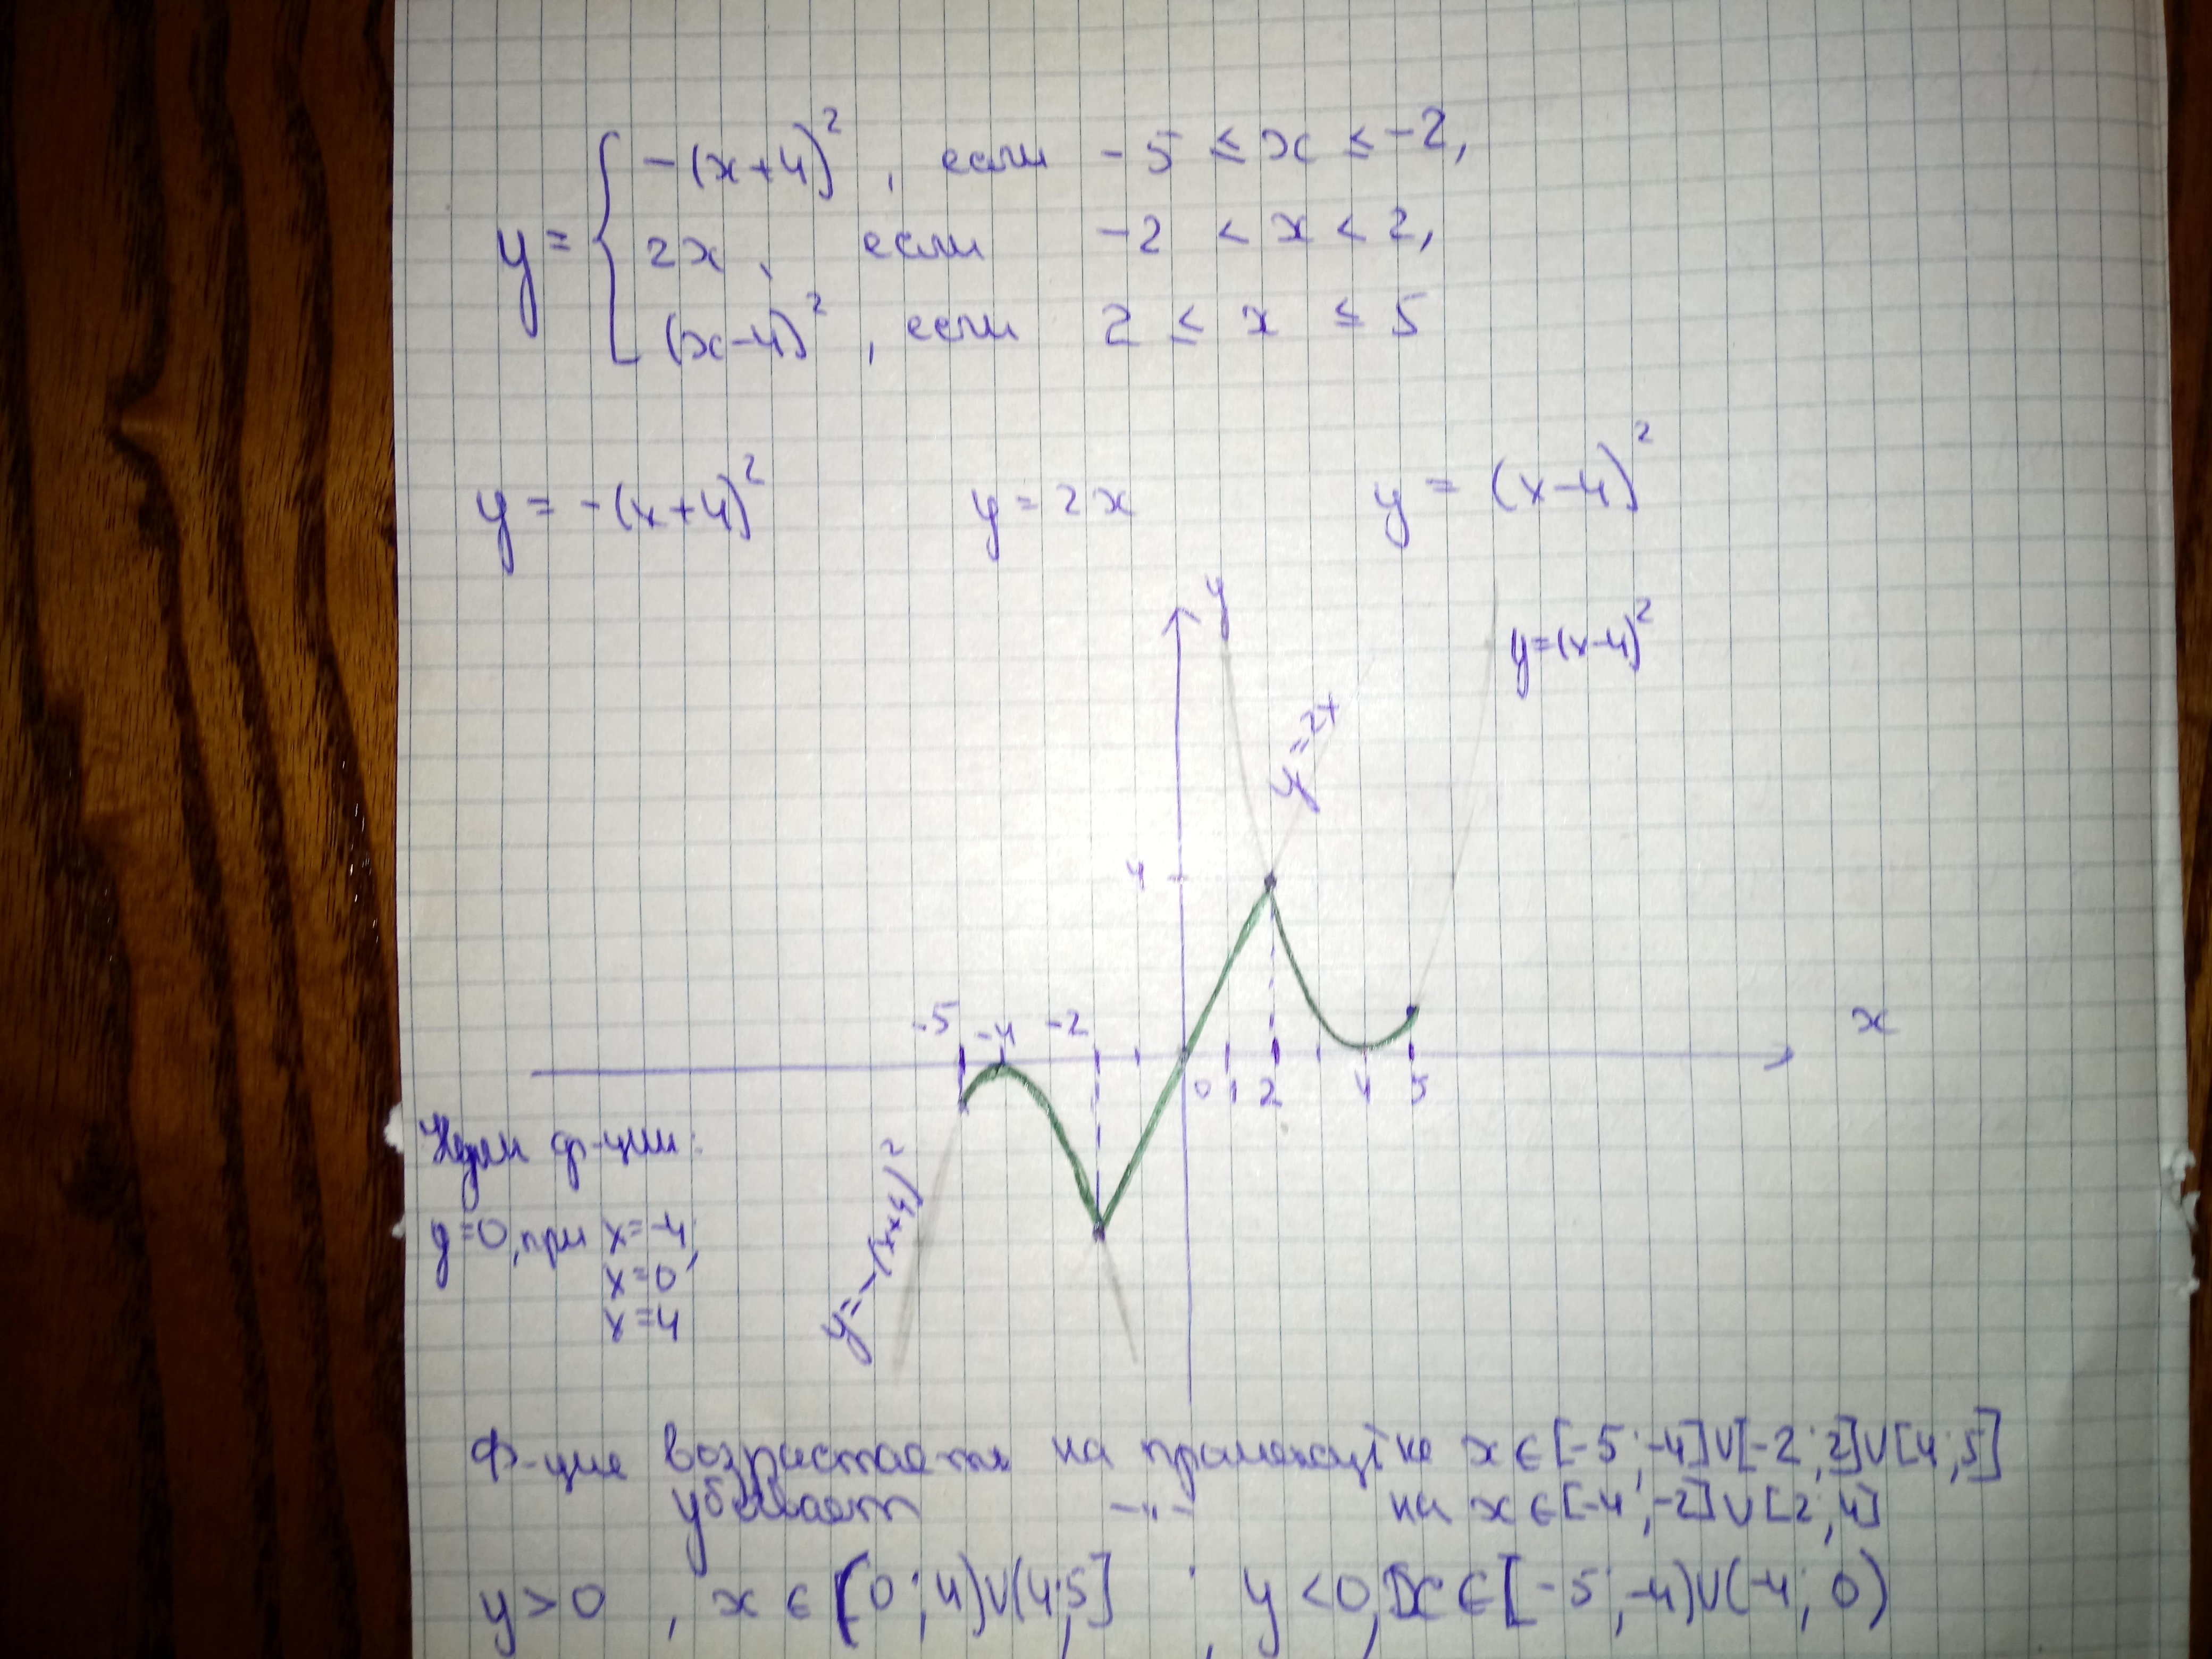 y = { -(x+4)², если -5 ≤ x ≤ -2,
2x, если -2 < x < 2,
(x-4)², если 2 ≤ x ≤ 5
y = -(x+4)² y = 2x y = (x-4)²
y
y=(x-4)²
y=2x
4
-5 -4 -2
x
0 1 2 4 5
y=-(x+4)²
Нули ф-ции:
y=0, при x=-4,
x=0,
x=4
Ф-ция возрастает на промежутке x∈[-5;-4]∪[-2;2]∪[4;5]
убывает -"- на x∈[-4;-2]∪[2;4]
y>0, x∈(0;4)∪(4;5] ; y<0, x∈[-5;-4)∪(-4;0)